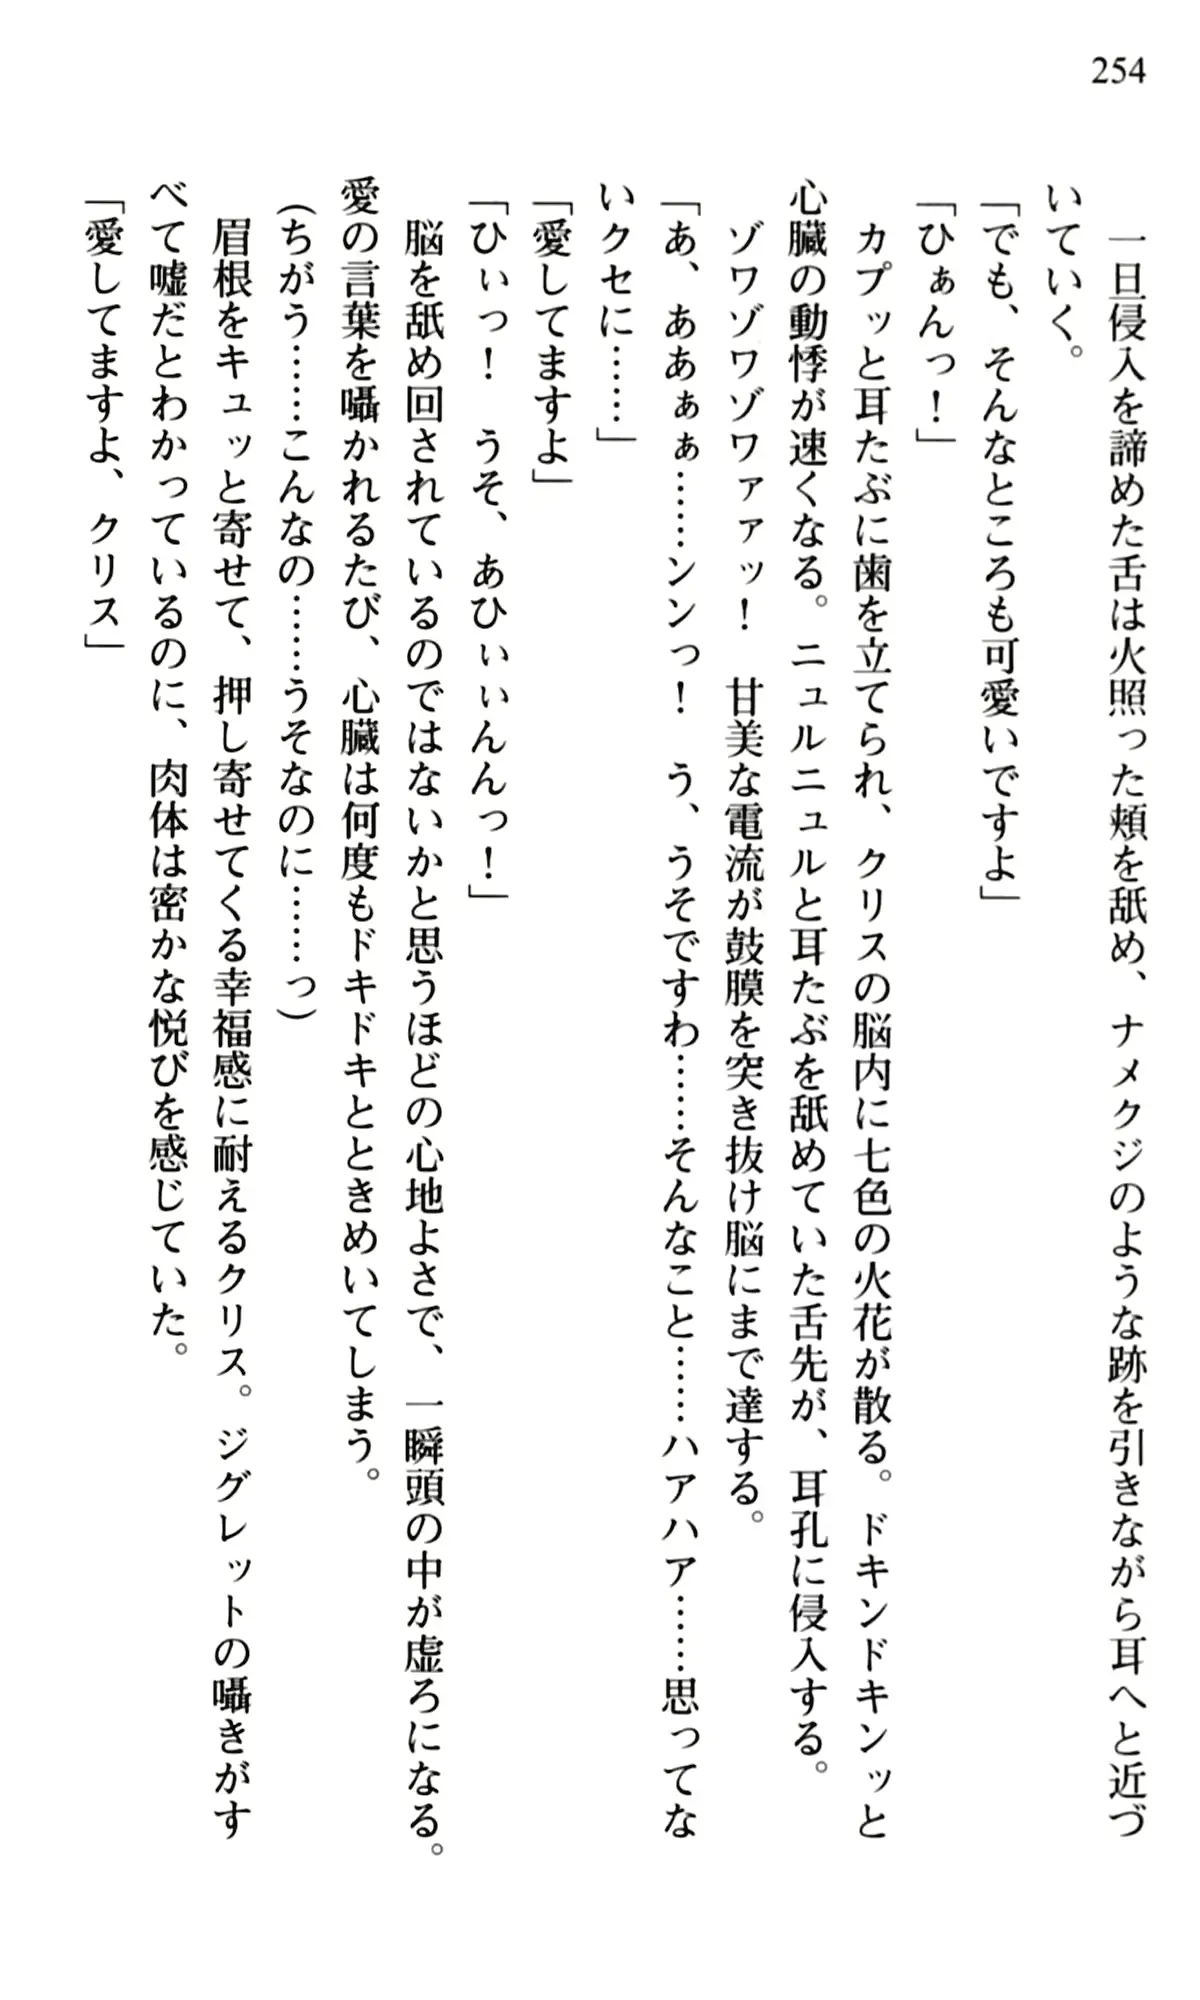 254
　一旦侵入を諦めた舌は火照った頬を舐め、ナメクジのような跡を引きながら耳へと近づ
いていく。
「でも、そんなところも可愛いですよ」
「ひぁんっ！」
　カプッと耳たぶに歯を立てられ、クリスの脳内に七色の火花が散る。ドキンドキンッと
心臓の動悸が速くなる。ニュルニュルと耳たぶを舐めていた舌先が、耳孔に侵入する。
　ゾワゾワゾワァァッ！　甘美な電流が鼓膜を突き抜け脳にまで達する。
「あ、ああぁぁ……ンンっ！　う、うそですわ……そんなこと……ハアハア……思ってな
いクセに……」
「愛してますよ」
「ひぃっ！　うそ、あひぃぃんんっ！」
　脳を舐め回されているのではないかと思うほどの心地よさで、一瞬頭の中が虚ろになる。
愛の言葉を囁かれるたび、心臓は何度もドキドキとときめいてしまう。
（ちがう……こんなの……うそなのに……っ）
　眉根をキュッと寄せて、押し寄せてくる幸福感に耐えるクリス。ジグレットの囁きがす
べて嘘だとわかっているのに、肉体は密かな悦びを感じていた。
「愛してますよ、クリス」